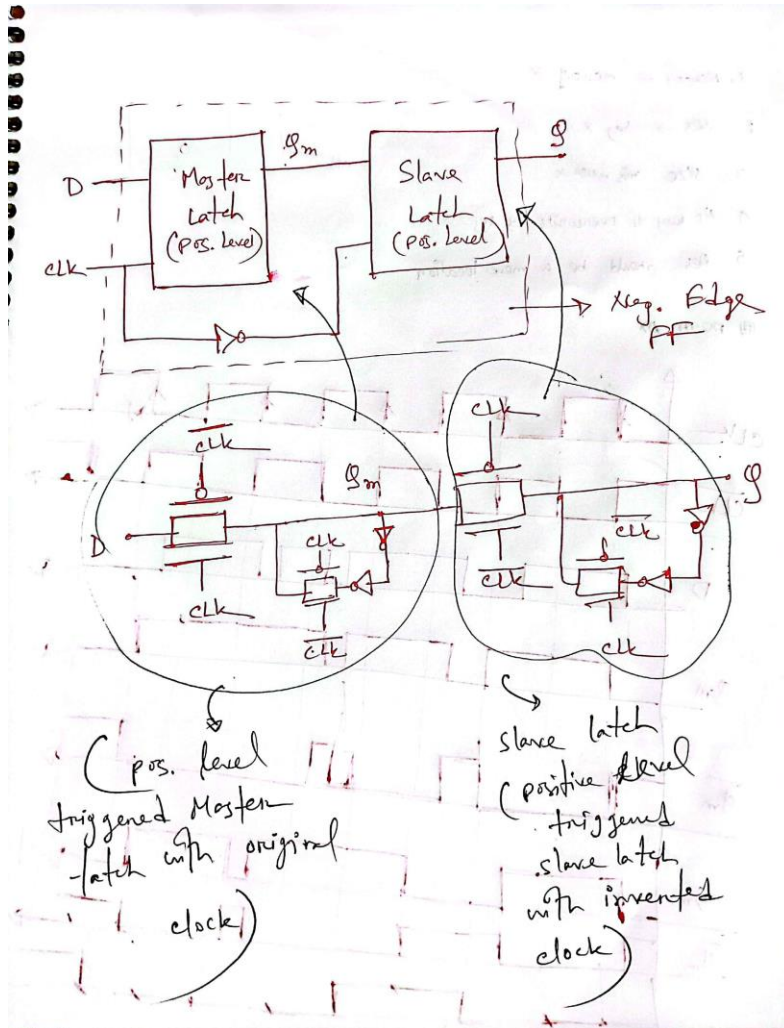 D
Master
Latch
(Pos. Level)
Qm
Slave
Latch
(Pos. Level)
Q
CLK
Neg. Edge
FF
C̅L̅K̅
Qm
D
CLK
CLK
C̅L̅K̅
CLK
C̅L̅K̅
Q
C̅L̅K̅
CLK
(pos. level
triggered Master
latch with original
clock)
slave latch
(positive level
triggered
slave latch
with inverted
clock)